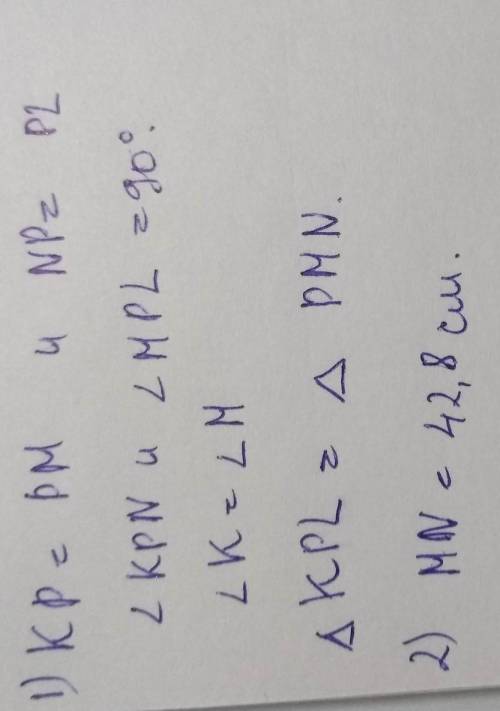 1) KP = PM и NP = PL
∠KPN и ∠MPL = 90°.
∠K = ∠M
△KPL = △PMN.
2) MN = 42,8 см.